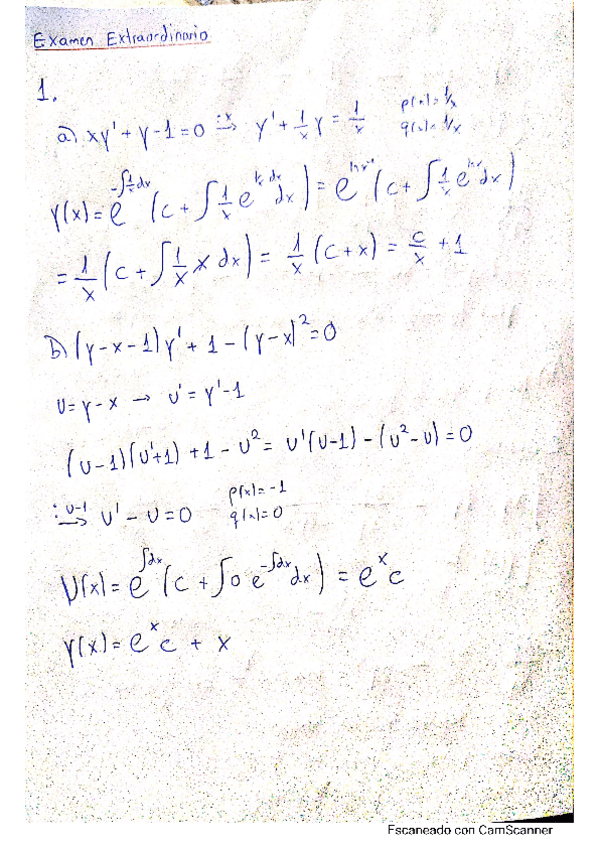 Examen Extraordinario
1.
a) xy' + y - 1 = 0 →(:x) y' + 1/x y = 1/x    p(x) = 1/x
q(x) = 1/x
y(x) = e^(-∫1/x dx) (c + ∫ 1/x e^(∫1/x dx) dx) = e^(ln x⁻¹) (c + ∫ 1/x e^(ln x) dx)
= 1/x (c + ∫ 1/x x dx) = 1/x (c + x) = c/x + 1
b) (y - x - 1) y' + 1 - (y - x)² = 0
u = y - x → u' = y' - 1
(u - 1)(u' + 1) + 1 - u² = u'(u - 1) - (u² - u) = 0
→(:u-1) u' - u = 0    p(x) = -1
q(x) = 0
u(x) = e^(∫dx) (c + ∫ 0 e^(-∫dx) dx) = e^x c
y(x) = e^x c + x
Escaneado con CamScanner